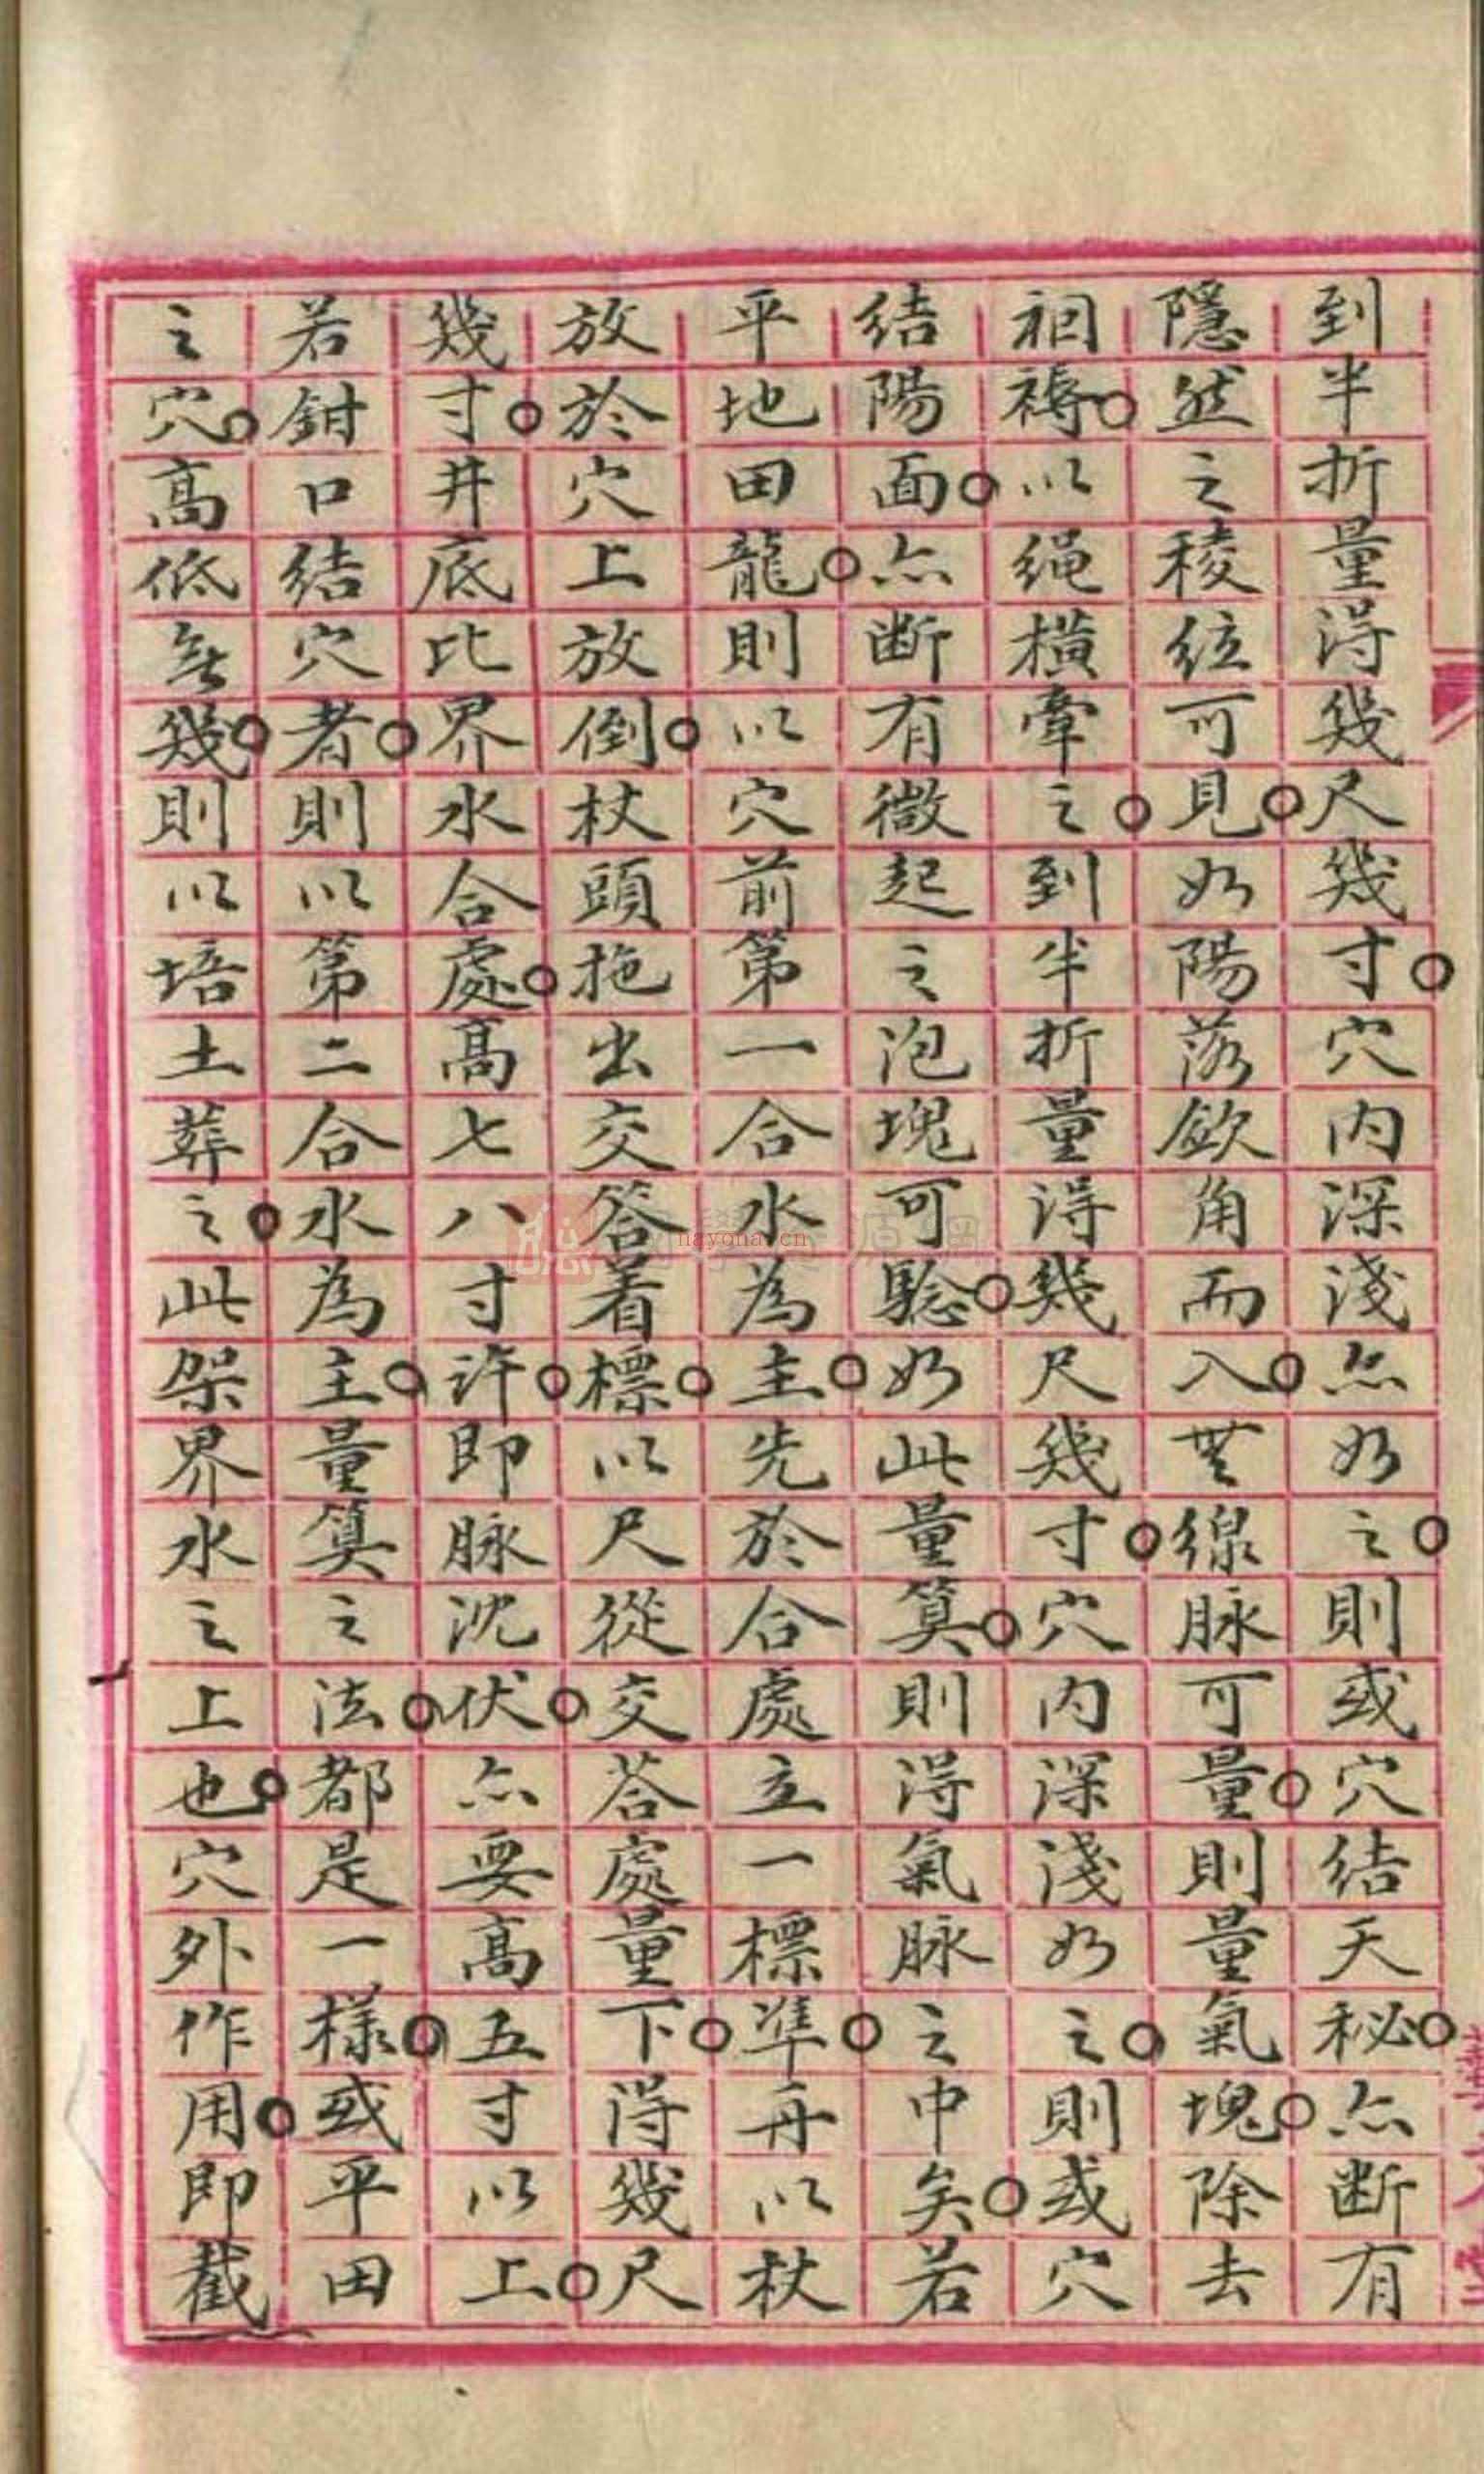 到半折量淂幾尺幾寸○穴内深淺亦如之○則或穴結天秘○亦断有
隱然之稜纮可見○如陽落歛角而入○無線脉可量○則量氣塊○除去
裀褥○以绳横牽之○到半折量淂幾尺幾寸○穴内深淺如之○則或穴
結陽面○亦断有微起之泡塊可騐○如此量算○則淂氣脉之中矣○若
平地田龍○則以穴前第一合水為主○先於合處立一標準○再以杖
放於穴上放倒○杖頭拖出交答着標○以尺從交荅處量下○淂幾尺
幾寸○井底比界水合處○髙七八寸許○即脉沈伏○亦要髙五寸以上○
若鉗口結穴者○則以第二合水為主○量算之法○都是一樣○或平田
之穴○髙低無幾○則以培土葬之○此架界水之上也○穴外作用○即截
nayona.cn